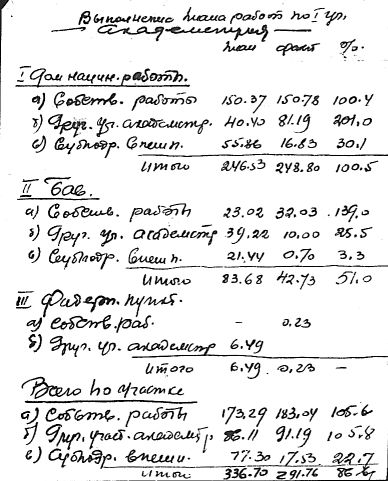 Выполнение плана работ по I уч.
Академстроя
план факт %
I Фонд начисл. работы.
а) Собств. работы 150.37 150.78 100.4
б) Друг. уч. академстр. 40.40 81.19 201.0
в) Субподр. внешн. 55.86 16.83 30.1
Итого 246.53 248.80 100.5
II Бав.
а) Собств. работы 23.02 32.03 139.0
б) Друг. уч. академстр 39.22 10.00 25.5
в) Субподр. внешн. 21.44 0.70 3.3
Итого 83.68 42.73 51.0
III пункт.
а) собств. раб. - 0.23
б) Друг. уч. академстр 6.49
Итого 6.49 0.23 -
Всего по участке
а) Собств. работы 173,29 183,04 105.6
б) Друг. участ. академстр 86.11 91.19 105.8
в) Субподр. внешн. 77.30 17.53 22.7
Итого 336.70 291.76 86.6